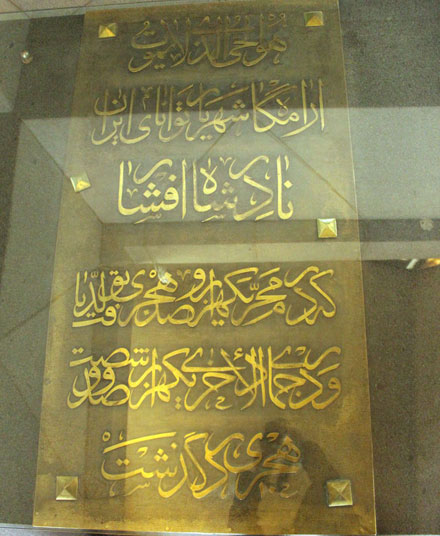 هو الحی الذی لا یموت
آرامگاه شهریار توانای ایران
نادر شاه افشار
که در محرم یکهزار و صد هجری تولد یافت
و در جمادی الاخری یکهزار و صد و شصت
هجری درگذشت